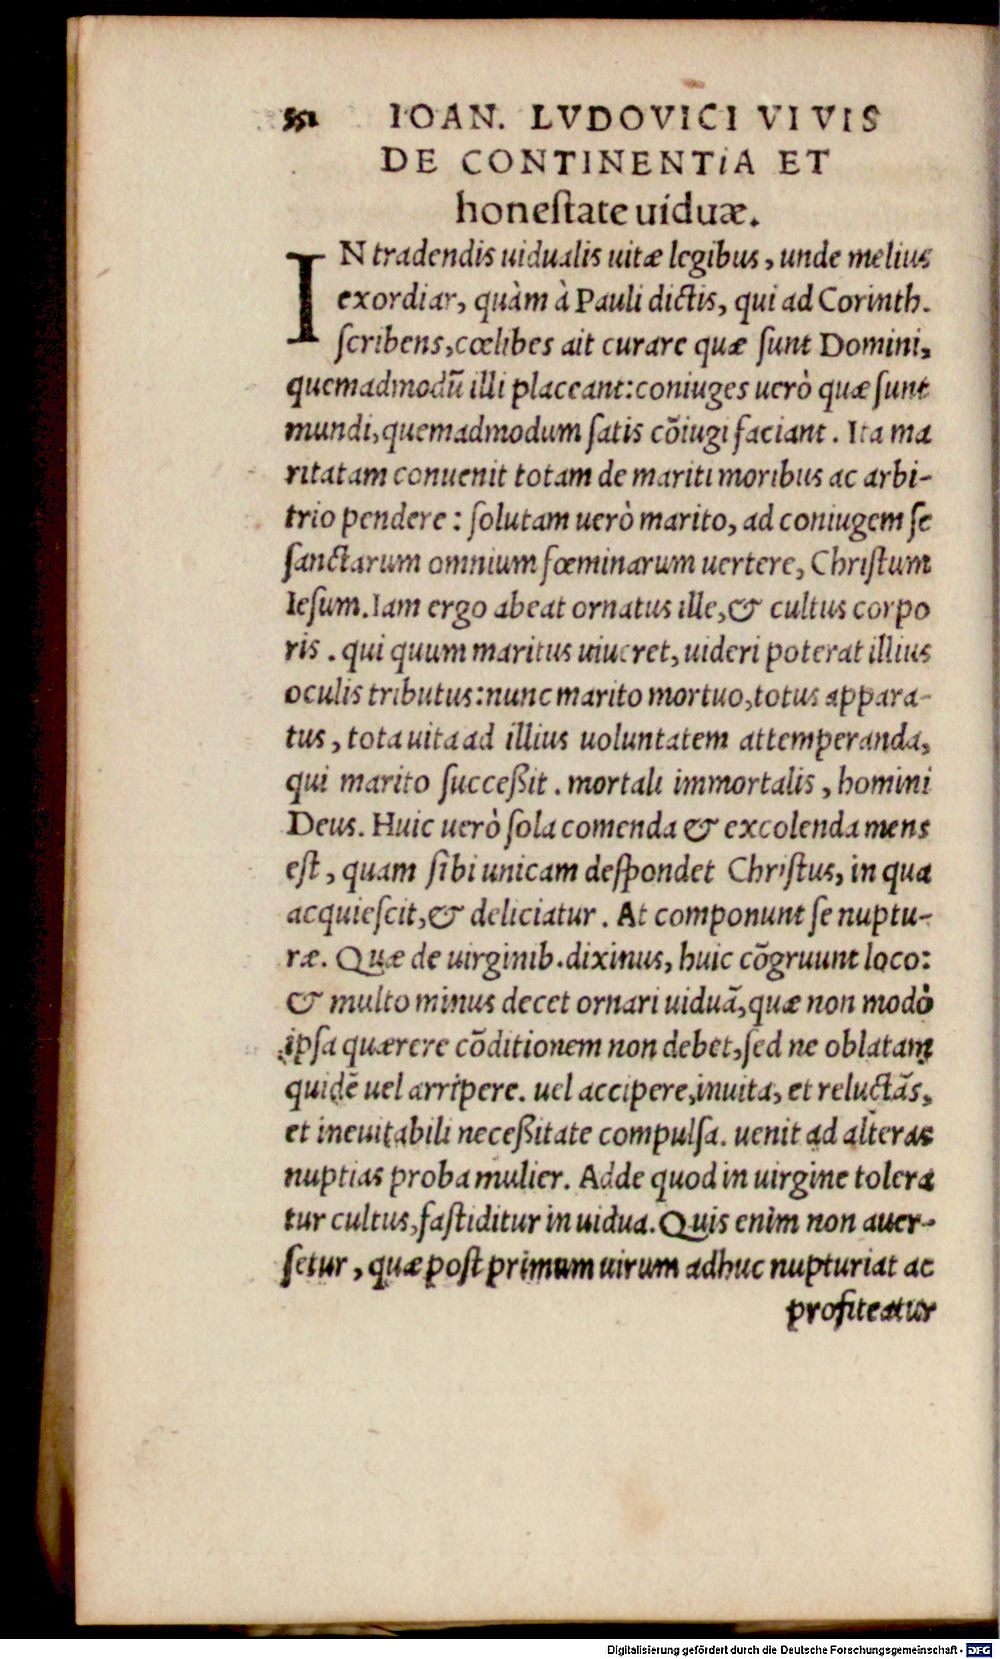 IOAN. LVDOVICI VIVIS
DE CONTINENTIA ET
honeſtate uiduæ.
IN tradendis uidualis uitæ legibus, unde melius
exordiar, quàm à Pauli dictis, qui ad Corinth.
ſcribens, cœlibes ait curare quæ ſunt Domini,
quemadmodũ illi placeant: coniuges uerò quæ ſunt
mundi, quemadmodum ſatis cõiugi faciant. Ita ma
ritatam conuenit totam de mariti moribus ac arbi-
trio pendere: ſolutam uerò marito, ad coniugem ſe
ſanctarum omnium fœminarum uertere, Chriſtum
Ieſum. Iam ergo abeat ornatus ille, & cultus corpo
ris. qui quum maritus uiueret, uideri poterat illius
oculis tributus: nunc marito mortuo, totus appara-
tus, tota uita ad illius uoluntatem attemperanda,
qui marito ſucceßit. mortali immortalis, homini
Deus. Huic uerò ſola comenda & excolenda mens
eſt, quam ſibi unicam deſpondet Chriſtus, in qua
acquieſcit, & deliciatur. At componunt ſe nuptu-
ræ. Quæ de uirginib. dixinus, huic cõgruunt loco:
& multo minus decet ornari uiduã, quæ non modò
ipſa quærere cõditionem non debet, ſed ne oblatam
quidẽ uel arripere. uel accipere, inuita, et reluctãs,
et ineuitabili neceßitate compulſa. uenit ad alteras
nuptias proba mulier. Adde quod in uirgine tolera
tur cultus, faſtiditur in uidua. Quis enim non auer-
ſetur, quæ poſt primum uirum adhuc nupturiat ac
profiteatur
Digitalisierung gefördert durch die Deutsche Forschungsgemeinschaft - DFG